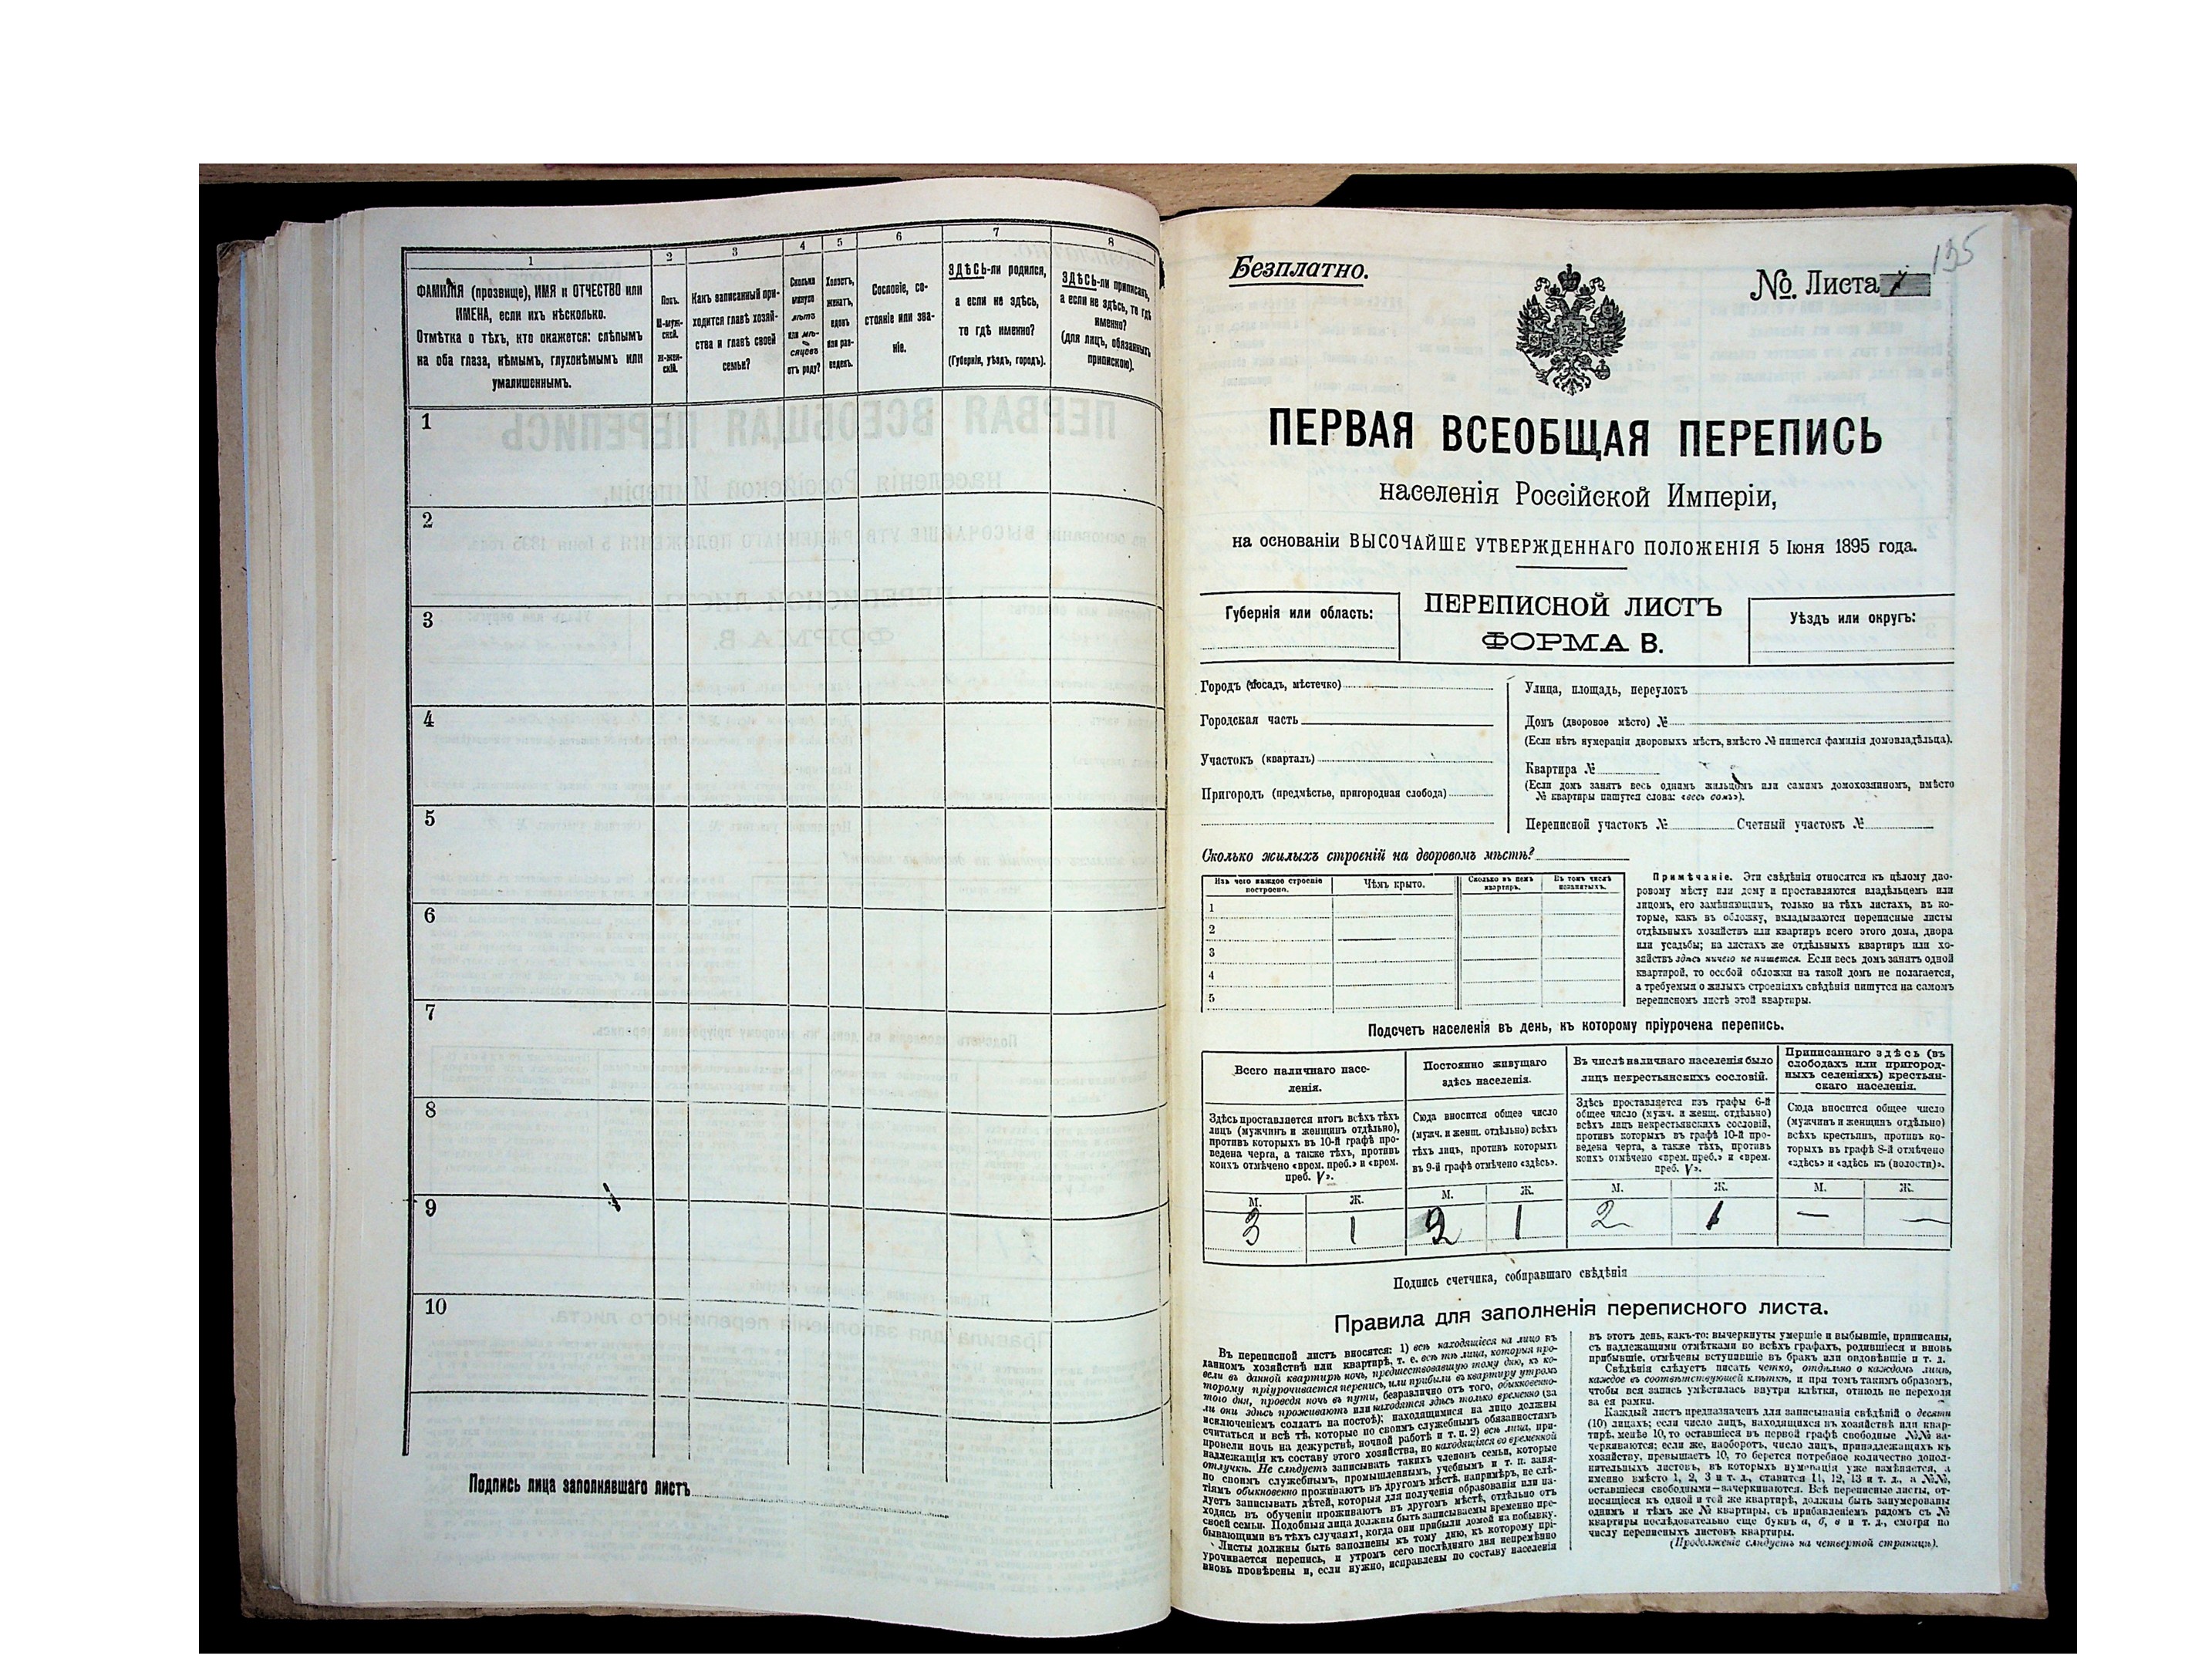 1
2
3
4
5
6
7
8
ФАМИЛІЯ (прозвище), ИМЯ и ОТЧЕСТВО или
ИМЕНА, если ихъ нѣсколько.
Отмѣтка о тѣхъ, кто окажется: слѣпымъ
на оба глаза, нѣмымъ, глухонѣмымъ или
умалишеннымъ.
Полъ.
М-муж-
ской.
Ж-жен-
скій.
Какъ записанный при-
ходится главѣ хозяй-
ства и главѣ своей
семьи?
Сколько
минуло
лѣтъ
или мѣ-
сяцевъ
отъ роду?
Холостъ,
женатъ,
вдовъ
или раз-
веденъ.
Сословіе, со-
стояніе или зва-
ніе.
ЗДѢСЬ-ли родился,
а если не здѣсь,
то гдѣ именно?
(Губернія, уѣздъ, городъ).
ЗДѢСЬ-ли приписанъ,
а если не здѣсь, то гдѣ
именно?
(для лицъ, обязанныхъ
припискою).
1
2
3
4
5
6
7
8
9
10
Подпись лица заполнявшаго листъ
135
Безплатно.
№ Листа
ПЕРВАЯ ВСЕОБЩАЯ ПЕРЕПИСЬ
населенія Россійской Имперіи,
на основаніи ВЫСОЧАЙШЕ УТВЕРЖДЕННАГО ПОЛОЖЕНІЯ 5 Іюня 1895 года.
Губернія или область:
ПЕРЕПИСНОЙ ЛИСТЪ
ФОРМА В.
Уѣздъ или округъ:
Городъ (посадъ, мѣстечко)
Городская часть
Участокъ (кварталъ)
Пригородъ (предмѣстье, пригородная слобода)
Улица, площадь, переулокъ
Домъ (дворовое мѣсто) №
(Если нѣтъ нумераціи дворовыхъ мѣстъ, вмѣсто № пишется фамилія домовладѣльца).
Квартира №
(Если домъ занятъ весь однимъ жильцомъ или самимъ домохозяиномъ, вмѣсто
№ квартиры пишутся слова: «весь домъ»).
Переписной участокъ № Счетный участокъ №
Сколько жилыхъ строеній на дворовомъ мѣстѣ?
Изъ чего каждое строеніе
построено.
Чѣмъ крыто.
Сколько въ немъ
квартиръ.
Въ томъ числѣ
незанятыхъ.
1
2
3
4
5
Примѣчаніе. Эти свѣдѣнія относятся къ цѣлому дво-
ровому мѣсту или дому и проставляются владѣльцемъ или
лицомъ, его замѣняющимъ, только на тѣхъ листахъ, въ ко-
торые, какъ въ обложку, вкладываются переписные листы
отдѣльныхъ хозяйствъ или квартиръ всего этого дома, двора
или усадьбы; на листахъ же отдѣльныхъ квартиръ или хо-
зяйствъ здѣсь ничего не пишется. Если весь домъ занятъ одной
квартирой, то особой обложки на такой домъ не полагается,
а требуемыя о жилыхъ строеніяхъ свѣдѣнія пишутся на самомъ
переписномъ листѣ этой квартиры.
Подсчетъ населенія въ день, къ которому пріурочена перепись.
Всего наличнаго насе-
ленія.
Постоянно живущаго
здѣсь населенія.
Въ числѣ наличнаго населенія было
лицъ некрестьянскихъ сословій.
Приписаннаго здѣсь (въ
слободахъ или пригород-
ныхъ селеніяхъ) крестьян-
скаго населенія.
Здѣсь проставляется итогъ всѣхъ тѣхъ
лицъ (мужчинъ и женщинъ отдѣльно),
противъ которыхъ въ 10-й графѣ про-
ведена черта, а также тѣхъ, противъ
коихъ отмѣчено «врем. преб.» и «врем.
преб. V».
Сюда вносится общее число
(мужч. и женщ. отдѣльно) всѣхъ
тѣхъ лицъ, противъ которыхъ
въ 9-й графѣ отмѣчено «здѣсь».
Здѣсь проставляется изъ графы 6-й
общее число (мужч. и женщ. отдѣльно)
всѣхъ лицъ некрестьянскихъ сословій,
противъ которыхъ въ графѣ 10-й про-
ведена черта, а также тѣхъ, противъ
коихъ отмѣчено «врем. преб.» и «врем.
преб. V».
Сюда вносится общее число
(мужчинъ и женщинъ отдѣльно)
всѣхъ крестьянъ, противъ ко-
торыхъ въ графѣ 8-й отмѣчено
«здѣсь» и «здѣсь къ (волости)».
М. Ж. М. Ж. М. Ж. М. Ж.
3 1 2 1 2 1 — —
Подпись счетчика, собиравшаго свѣдѣнія
Правила для заполненія переписного листа.
Въ переписной листъ вносятся: 1) всѣ находящіеся на лицо въ
данномъ хозяйствѣ или квартирѣ, т. е. всѣ тѣ лица, которыя про-
вели въ данной квартирѣ ночь, предшествовавшую тому дню, къ ко-
торому пріурочивается перепись, или прибыли въ квартиру утромъ
того дня, проведя ночь въ пути, безразлично отъ того, обыкновенно-
ли они здѣсь проживаютъ или находятся здѣсь только временно (за
исключеніемъ солдатъ на постоѣ); находящимися на лицо должны
считаться и всѣ тѣ, которые по своимъ служебнымъ обязанностямъ
провели ночь на дежурствѣ, ночной работѣ и т. п. 2) всѣ лица, при-
надлежащія къ составу этого хозяйства, но находящіяся во временной
отлучкѣ. Не слѣдуетъ записывать такихъ членовъ семьи, которые
по своимъ служебнымъ, промышленнымъ, учебнымъ и т. п. заня-
тіямъ обыкновенно проживаютъ въ другомъ мѣстѣ, напримѣръ, не слѣ-
дуетъ записывать дѣтей, которыя для полученія образованія или на-
ходясь въ обученіи проживаютъ въ другомъ мѣстѣ, отдѣльно отъ
своей семьи. Подобныя лица должны быть записываемы временно пре-
бывающими въ тѣхъ случаяхъ, когда они прибыли домой на побывку.
Листы должны быть заполнены къ тому дню, къ которому прі-
урочивается перепись, и утромъ сего послѣдняго дня непремѣнно
вновь провѣрены и, если нужно, исправлены по составу населенія
въ этотъ день, какъ-то: вычеркнуты умершіе и выбывшіе, приписаны,
съ надлежащими отмѣтками во всѣхъ графахъ, родившіеся и вновь
прибывшіе, отмѣчены вступившіе въ бракъ или овдовѣвшіе и т. д.
Свѣдѣнія слѣдуетъ писать четко, отдѣльно о каждомъ лицѣ,
каждое въ соотвѣтствующей клѣткѣ, и при томъ такимъ образомъ,
чтобы вся запись умѣстилась внутри клѣтки, отнюдь не переходя
за ея рамки.
Каждый листъ предназначенъ для записыванія свѣдѣній о десяти
(10) лицахъ; если число лицъ, находящихся въ хозяйствѣ или квар-
тирѣ, менѣе 10, то оставшіеся въ первой графѣ свободные №№ за-
черкиваются; если же, наоборотъ, число лицъ, принадлежащихъ къ
хозяйству, превышаетъ 10, то берется потребное количество допол-
нительныхъ листовъ, въ которыхъ нумерація уже измѣняется, а
именно вмѣсто 1, 2, 3 и т. д., ставится 11, 12, 13 и т. д., а №№,
оставшіеся свободными—зачеркиваются. Всѣ переписные листы, от-
носящіеся къ одной и той же квартирѣ, должны быть занумерованы
однимъ и тѣмъ же № квартиры, съ прибавленіемъ рядомъ съ №
квартиры послѣдовательно еще буквъ а, б, в и т. д., смотря по
числу переписныхъ листовъ квартиры.
(Продолженіе слѣдуетъ на четвертой страницѣ).